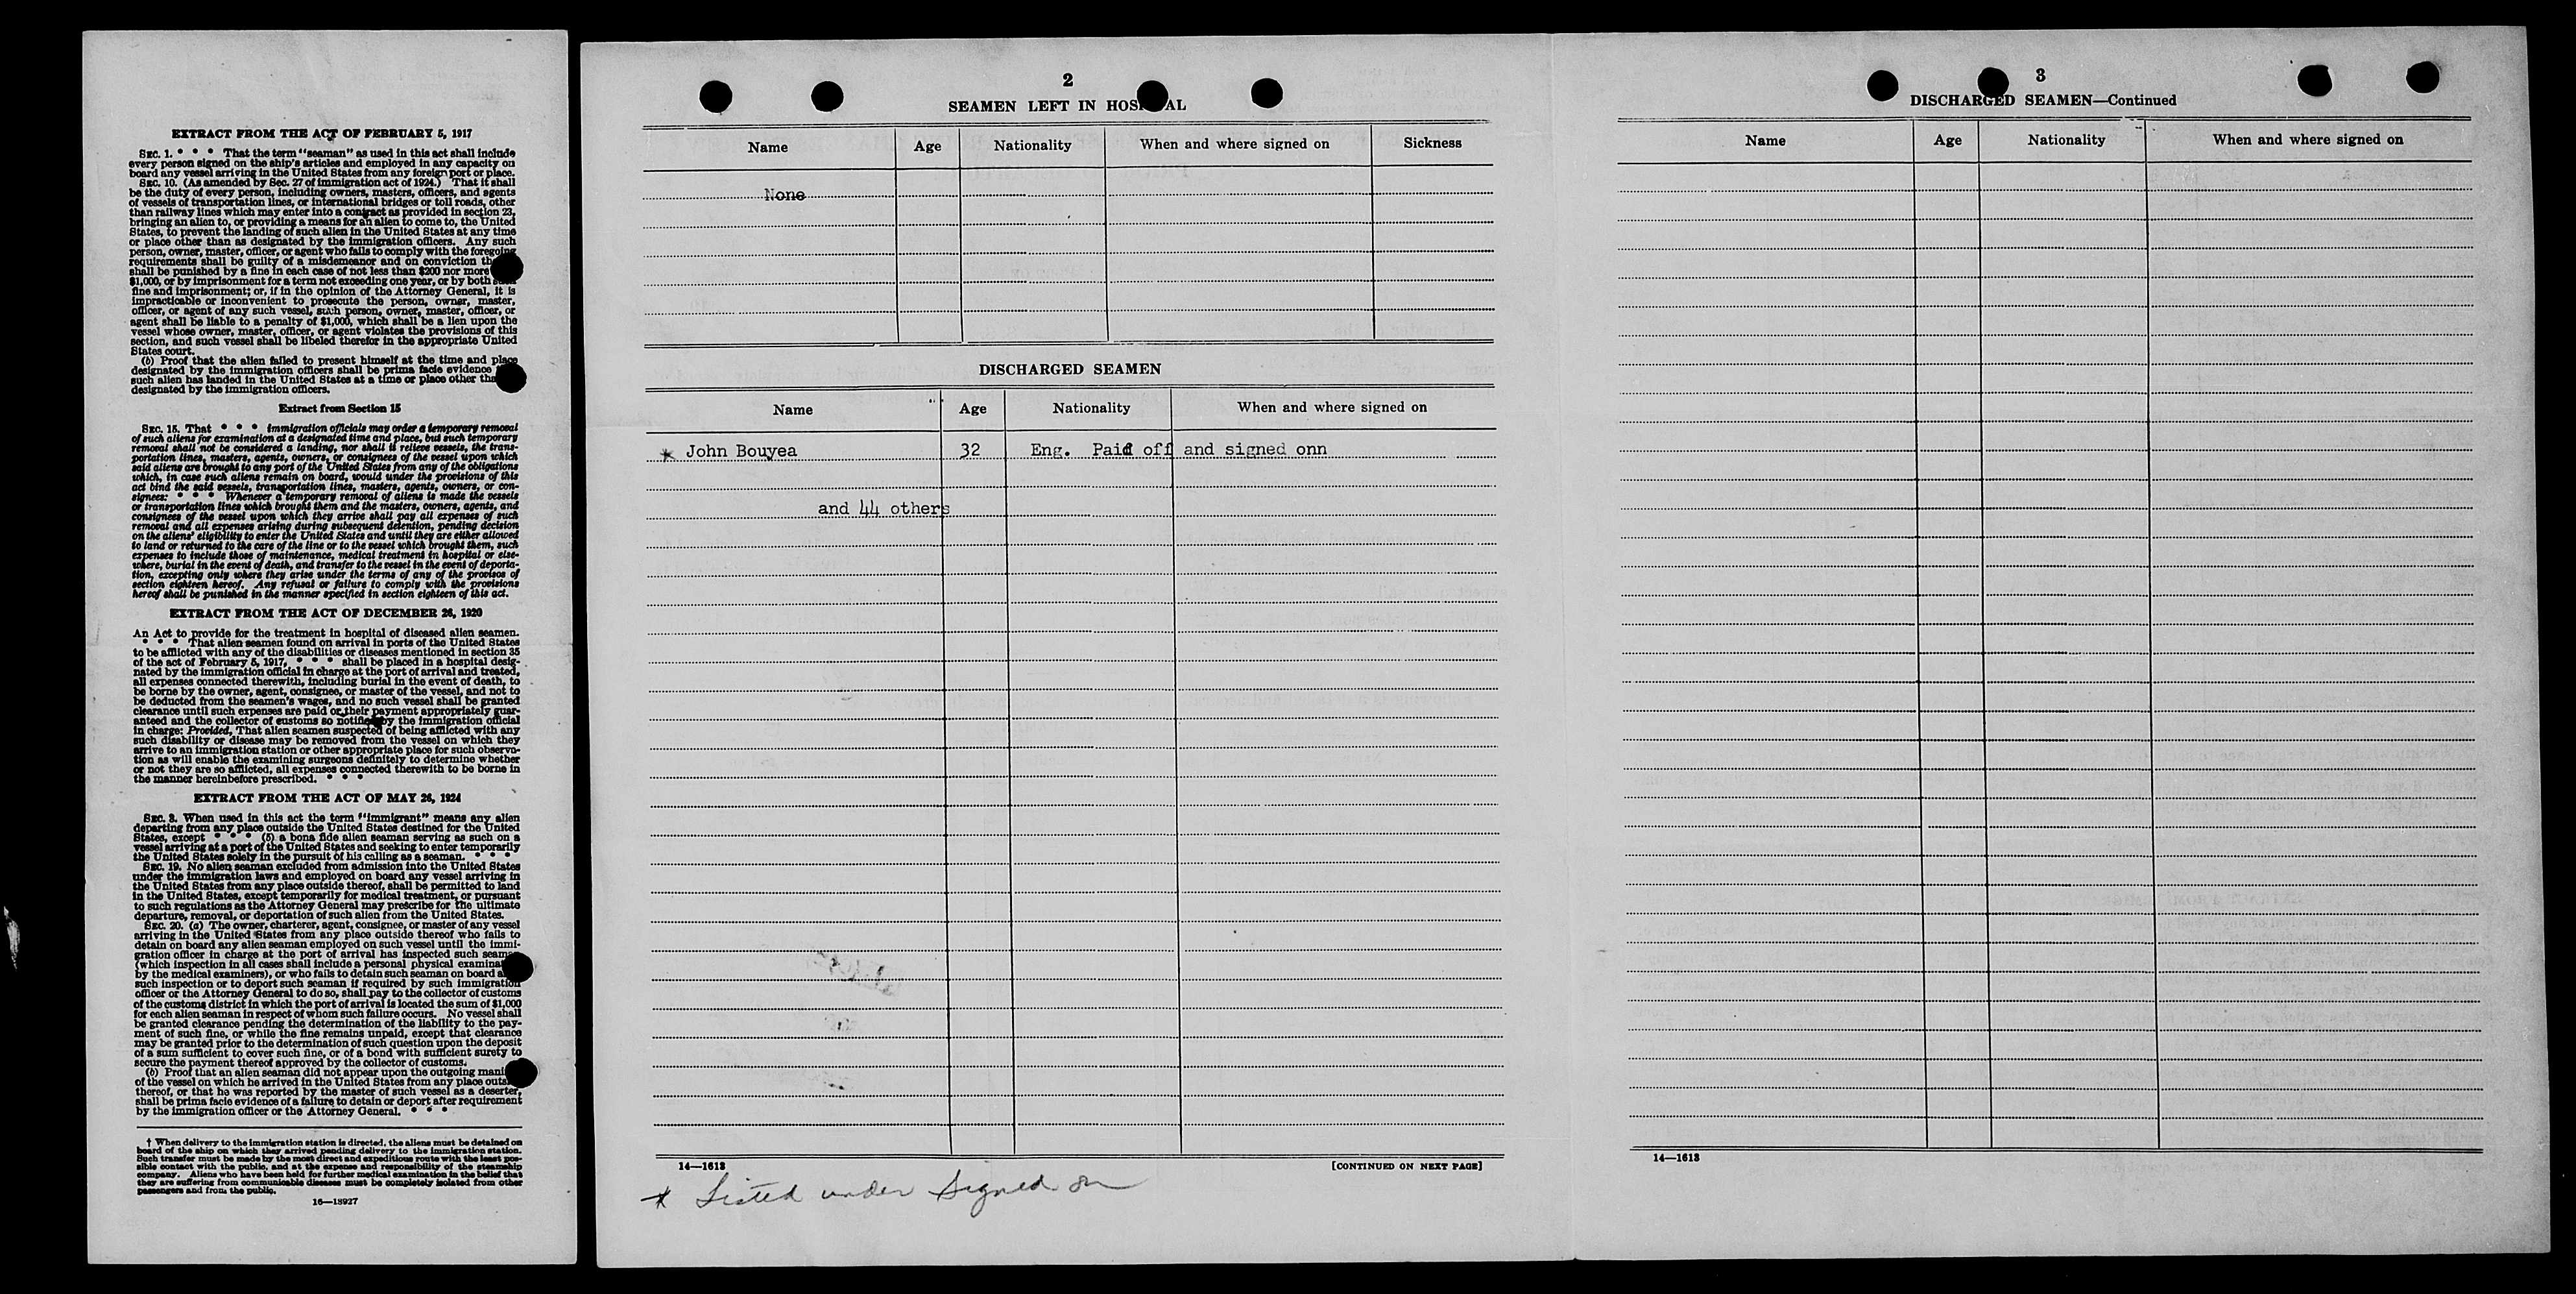 EXTRACT FROM THE ACT OF FEBRUARY 5, 1917
SEC. 1. * * * That the term "seaman" as used in this act shall include
every person signed on the ship's articles and employed in any capacity on
board any vessel arriving in the United States from any foreign port or place.
SEC. 10. (As amended by Sec. 27 of immigration act of 1924.) That it shall
be the duty of every person, including owners, masters, officers, and agents
of vessels of transportation lines, or international bridges or toll roads, other
than railway lines which may enter into a contract as provided in section 23,
bringing an alien to, or providing a means for an alien to come to, the United
States, to prevent the landing of such alien in the United States at any time
or place other than as designated by the immigration officers. Any such
person, owner, master, officer, or agent who fails to comply with the foregoing
requirements shall be guilty of a misdemeanor and on conviction
shall be punished by a fine in each case of not less than $200 nor more
$1,000, or by imprisonment for a term not exceeding one year, or by both
fine and imprisonment; or, if in the opinion of the Attorney General, it is
impracticable or inconvenient to prosecute the person, owner, master,
officer, or agent of any such vessel, such person, owner, master, officer, or
agent shall be liable to a penalty of $1,000, which shall be a lien upon the
vessel whose owner, master, officer, or agent violates the provisions of this
section, and such vessel shall be libeled therefor in the appropriate United
States court.
(b) Proof that the alien failed to present himself at the time and place
designated by the immigration officers shall be prima facie evidence
such alien has landed in the United States at a time or place other
designated by the immigration officers.
Extract from Section 15
SEC. 15. That * * * immigration officials may order a temporary removal
of such aliens for examination at a designated time and place, but such temporary
removal shall not be considered a landing, nor shall it relieve vessels, the trans-
portation lines, masters, agents, owners, or consignees of the vessel upon which
said aliens are brought to any port of the United States from any of the obligations
which, in case such aliens remain on board, would under the provisions of this
act bind the said vessels, transportation lines, masters, agents, owners, or con-
signees: * * * Whenever a temporary removal of aliens is made the vessels
or transportation lines which brought them and the masters, owners, agents, and
consignees of the vessel upon which they arrive shall pay all expenses of such
removal and all expenses arising during subsequent detention, pending decision
on the aliens' eligibility to enter the United States and until they are either allowed
to land or returned to the care of the line or to the vessel which brought them, such
expenses to include those of maintenance, medical treatment in hospital or else-
where, burial in the event of death, and transfer to the vessel in the event of deporta-
tion, excepting only where they arise under the terms of any of the provisos of
section eighteen hereof. Any refusal or failure to comply with the provisions
hereof shall be punished in the manner specified in section eighteen of this act.
EXTRACT FROM THE ACT OF DECEMBER 26, 1920
An Act to provide for the treatment in hospital of diseased alien seamen.
* * * That alien seamen found on arrival in ports of the United States
to be afflicted with any of the disabilities or diseases mentioned in section 35
of the act of February 5, 1917, * * * shall be placed in a hospital desig-
nated by the immigration official in charge at the port of arrival and treated,
all expenses connected therewith, including burial in the event of death, to
be borne by the owner, agent, consignee, or master of the vessel, and not to
be deducted from the seamen's wages, and no such vessel shall be granted
clearance until such expenses are paid or their payment appropriately guar-
anteed and the collector of customs so notified by the immigration official
in charge: Provided, That alien seamen suspected of being afflicted with any
such disability or disease may be removed from the vessel on which they
arrive to an immigration station or other appropriate place for such observa-
tion as will enable the examining surgeons definitely to determine whether
or not they are so afflicted, all expenses connected therewith to be borne in
the manner hereinbefore prescribed. * * *
EXTRACT FROM THE ACT OF MAY 26, 1924
SEC. 3. When used in this act the term "immigrant" means any alien
departing from any place outside the United States destined for the United
States, except * * * (5) a bona fide alien seaman serving as such on a
vessel arriving at a port of the United States and seeking to enter temporarily
the United States solely in the pursuit of his calling as a seaman. * * *
SEC. 19. No alien seaman excluded from admission into the United States
under the immigration laws and employed on board any vessel arriving in
the United States from any place outside thereof, shall be permitted to land
in the United States, except temporarily for medical treatment, or pursuant
to such regulations as the Attorney General may prescribe for the ultimate
departure, removal, or deportation of such alien from the United States.
SEC. 20. (a) The owner, charterer, agent, consignee, or master of any vessel
arriving in the United States from any place outside thereof who fails to
detain on board any alien seaman employed on such vessel until the immi-
gration officer in charge at the port of arrival has inspected such seaman
(which inspection in all cases shall include a personal physical examination
by the medical examiners), or who fails to detain such seaman on board
such inspection or to deport such seaman if required by such immigration
officer or the Attorney General to do so, shall pay to the collector of customs
of the customs district in which the port of arrival is located the sum of $1,000
for each alien seaman in respect of whom such failure occurs. No vessel shall
be granted clearance pending the determination of the liability to the pay-
ment of such fine, or while the fine remains unpaid, except that clearance
may be granted prior to the determination of such question upon the deposit
of a sum sufficient to cover such fine, or of a bond with sufficient surety to
secure the payment thereof approved by the collector of customs.
(b) Proof that an alien seaman did not appear upon the outgoing manifest
of the vessel on which he arrived in the United States from any place outside
thereof, or that he was reported by the master of such vessel as a deserter,
shall be prima facie evidence of a failure to detain or deport after requirement
by the immigration officer or the Attorney General. * * *
† When delivery to the immigration station is directed, the aliens must be detained on
board of the ship on which they arrived pending delivery to the immigration station.
Such transfer must be made by the most direct and expeditious route with the least pos-
sible contact with the public, and at the expense and responsibility of the steamship
company. Aliens who have been held for further medical examination in the belief that
they are suffering from communicable diseases must be completely isolated from other
passengers and from the public.
16—18927
2
SEAMEN LEFT IN HOSPITAL
Name Age Nationality When and where signed on Sickness
None
DISCHARGED SEAMEN
Name Age Nationality When and where signed on
* John Bouyea 32 Eng. Paid off and signed onn
and 44 others
14—1613
[CONTINUED ON NEXT PAGE]
* Listed under Signed on
3
DISCHARGED SEAMEN—Continued
Name Age Nationality When and where signed on
14—1613